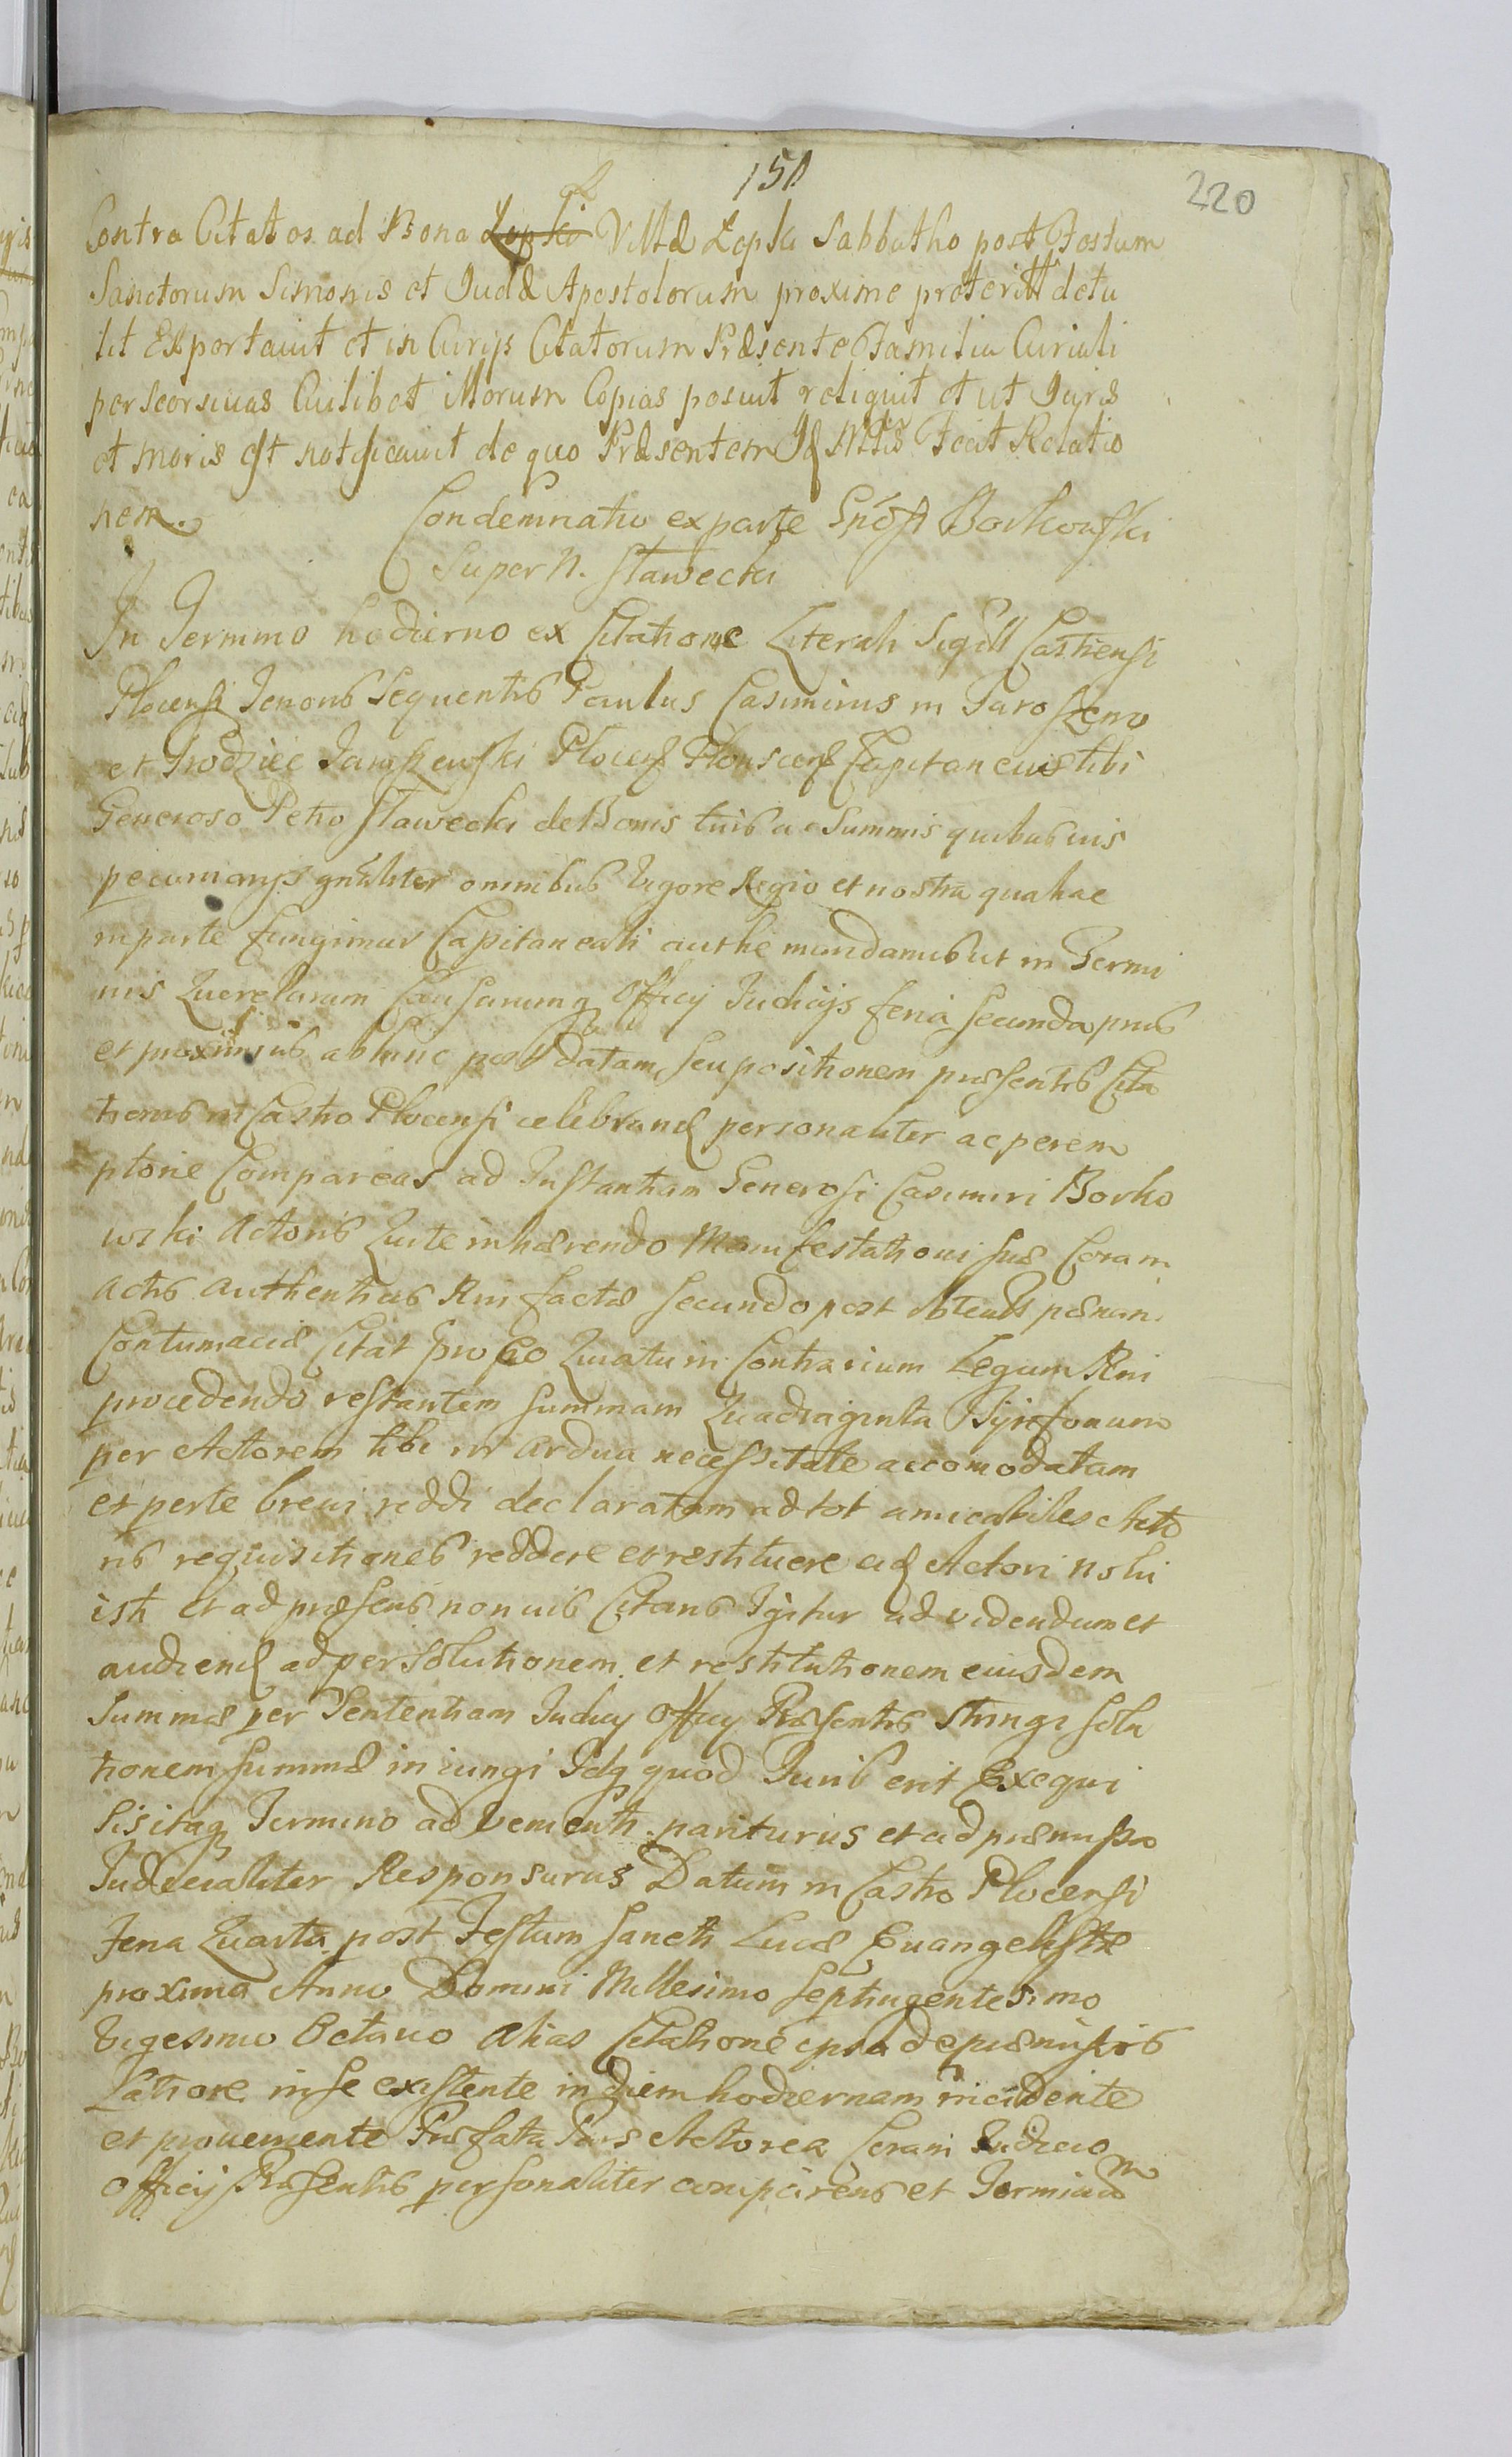 151
220
Contra Citatos ad Bona Lepki Villæ Lepki Sabbatho post Festum
Sanctorum Simonis et Judæ Apostolorum proxime preteritt detu
lit Exportauit et in Curijs Citatorum Præsente Familia Curiali
per Seorsiuas Cuilibet illorum Copias posuit reliquit et ut Juris
et moris est notificauit de quo Præsentem Jd Mtis Fecit Relatio
nem.
Condemnatio ex parte Gnosi Borkowski
Super N. Sławecki
In Termino hodierno ex Citatione Literali Sigill Castrensi
Plocensi Tenoris Sequentis Paulus Casimirus in
et Grodziec Plocen Plonscen Capitaneus tibi
Generoso Petro Sławecki de Bonis tuis ac Summis quibusuis
pecuniarijs gnaliter omnibus Vigore Regio et nostra qua hac
in parte fungimur Capitaneali authe mandamus ut in Termi
nis Querelarum Causarumq Officij Judicijs feria Secunda
et proximis ab hinc post datam, seu positionem præsentis Cita
tionis in Castro Plocensi celebrand personaliter ac perem
ptorie Compareas ad Instantiam Generosi Casimiri Borko
wski Actoris Qui te inhærendo Manifestationi suæ Coram
actis authenticis Rni factæ secundo post pænam
Contumaciæ Citat pro Eo Quia tu in Contrarium Legum Rni
procedendo restantem summam Quadraginta Tijnfonum
per Actorem tibi in ardua necessitate accomodatam
et per te breui reddi declaratam ad tot amicabiles Acto
ris requisitiones reddere et restituere eid Actori nolu
isti et ad præsens non uis Citaris Igitur ad videndum et
audiend ad persolutionem et restitutionem eiusdem
Summæ per Sententiam Judicij Officij Præsentis stringi solu
tionem summæ iniungi Idq quod Juris erit Exequi
Sis itaq Termino aduenienti pariturus et ad præmissa
Judicialiter Responsurus Datum in Castro Plocensi
Feria Quarta post Festum Sancti Lucæ Euangelistæ
proxima Anno Domini Millesimo Septingentesimo
Vigesimo Octauo Alias Citatione ipsa de præmissis
Latiore in se existente in diem hodiernam incidente
et proueniente Præfata Pars Actorea Coram Judicio
Officij Præsentis personaliter comparens et Terminum